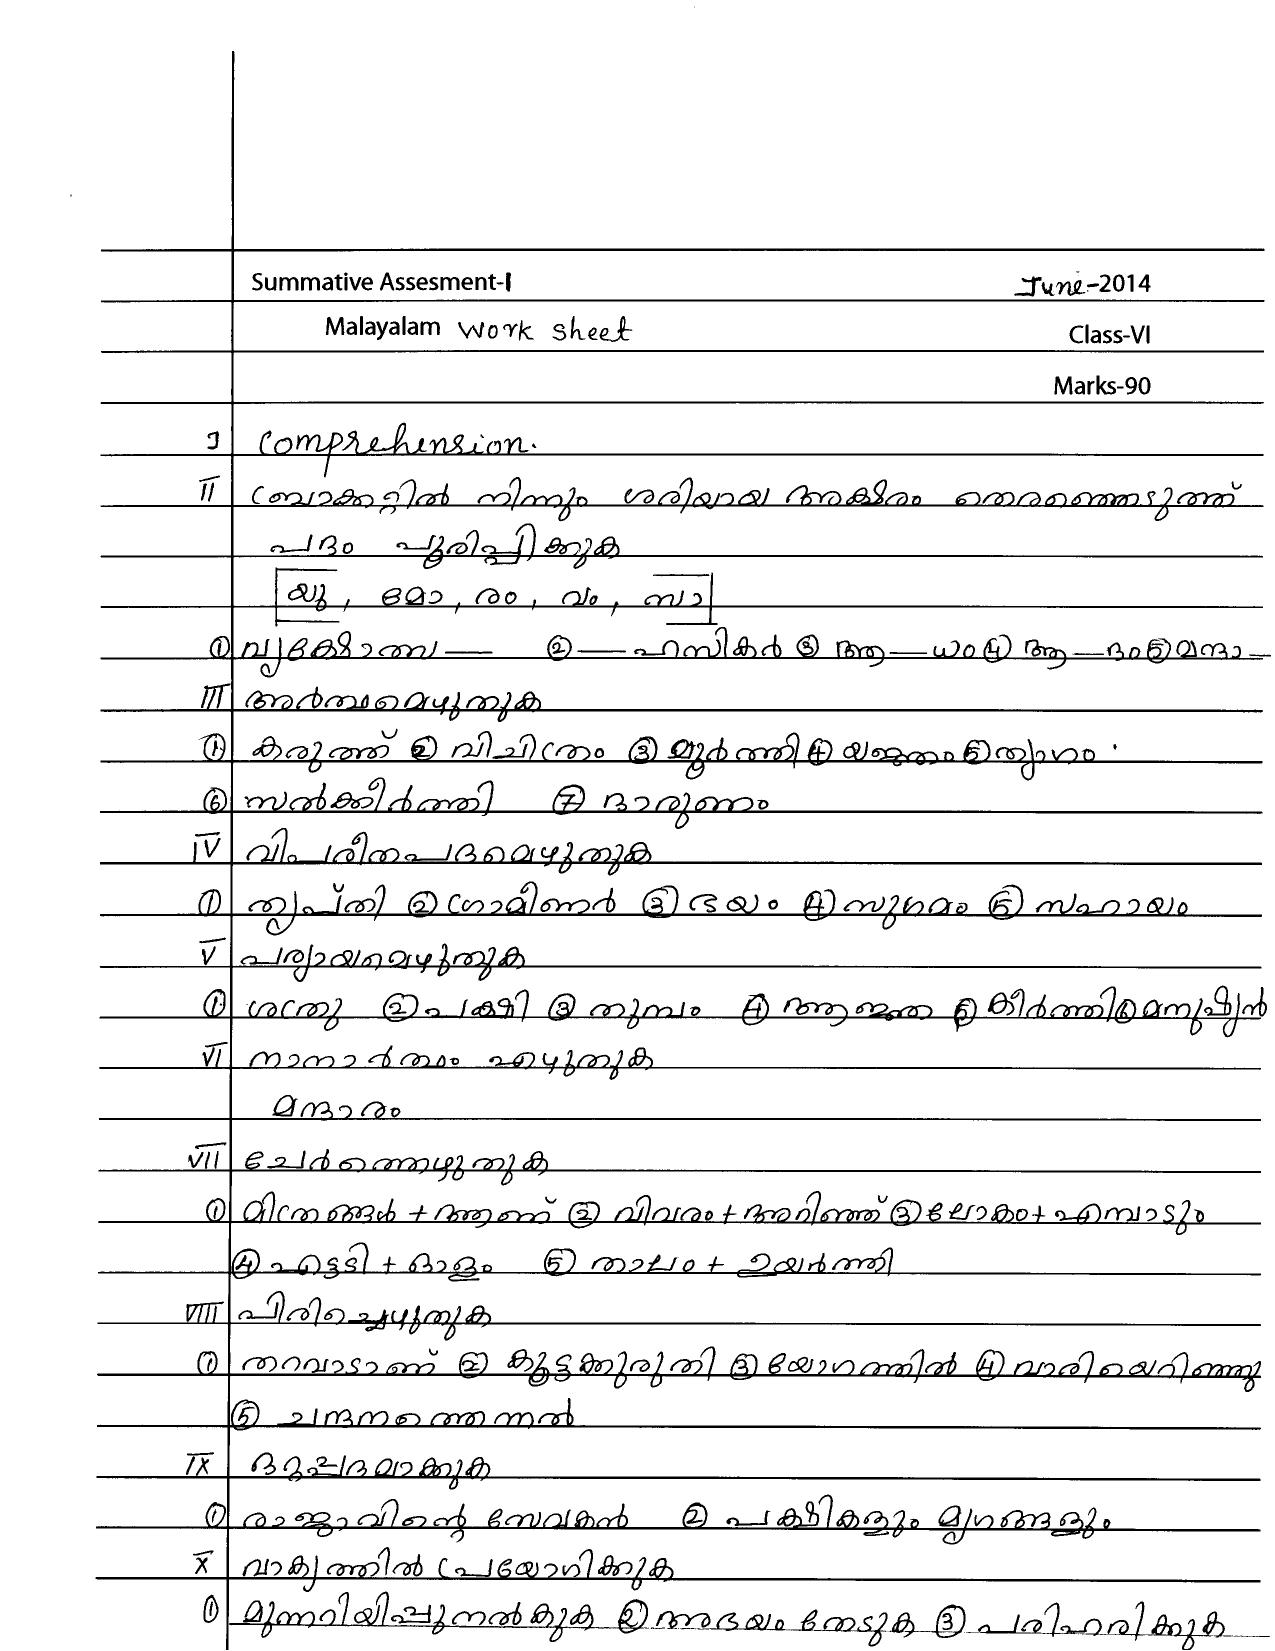 Summative Assesment-I June-2014
Malayalam Work sheet Class-VI
Marks-90
I Comprehension.
II ബ്രാക്കറ്റിൽ നിന്നും ശരിയായ അക്ഷരം തെരഞ്ഞെടുത്ത്
പദം പൂരിപ്പിക്കുക
യു, മോ, രം, വം, സാ
① വൃക്ഷോത്ഭ — ② — ഹസികർ ③ ആ — ധം ④ ആ — ദം ⑤ മന്ദാ —
III അർത്ഥമെഴുതുക
① കരുത്ത് ② വിചിത്രം ③ മൂർത്തി ④ യജ്ഞം ⑤ ത്യാഗം
⑥ സൽക്കീർത്തി ⑦ ദാരുണം
IV വിപരീതപദമെഴുതുക
① തൃപ്തി ② ഗ്രാമീണർ ③ ഭയം ④ സുഗമം ⑤ സഹായം
V പര്യായമെഴുതുക
① ശത്രു ② പക്ഷി ③ തുമ്പം ④ ആജ്ഞ ⑤ കീർത്തി ⑥ മനുഷ്യൻ
VI നാനാർത്ഥം എഴുതുക
മന്ദാരം
VII ചേർത്തെഴുതുക
① മിത്രങ്ങൾ + ആണ് ② വിവരം + അറിഞ്ഞ് ③ ലോകം + എമ്പാടും
④ എട്ടടി + ഓളം ⑤ താലം + ഉയർത്തി
VIII പിരിച്ചെഴുതുക
① തറവാടാണ് ② കൂട്ടക്കുരുതി ③ യോഗത്തിൽ ④ വാരിയെറിഞ്ഞു
⑤ ചന്ദനത്തെന്നൽ
IX ഒറ്റപ്പദമാക്കുക
① രാജാവിന്റെ സേവകൻ ② പക്ഷികളും മൃഗങ്ങളും
X വാക്യത്തിൽ പ്രയോഗിക്കുക
① മുന്നറിയിപ്പുനൽകുക ② അഭയം തേടുക ③ പരിഹരിക്കുക